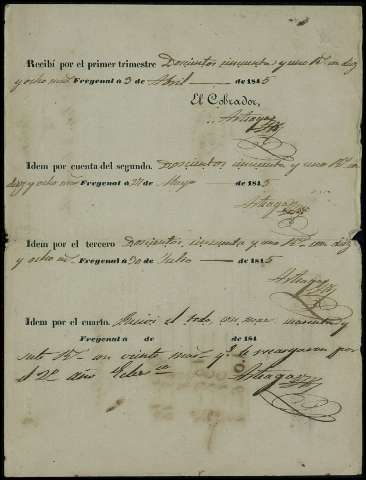 Recibí por el primer trimestre Doscientos cincuenta y uno Rs. con diez
y ocho mrs. Fregenal á 3 de Abril de 1845
El Cobrador,
Arteaga
Idem por cuenta del segundo. Doscientos cincuenta y uno Rs. con
diez y ocho mrs Fregenal á 27 de Mayo de 1845
Arteaga
Idem por el tercero Doscientos cincuenta y uno Rs. con diez
y ocho m. Fregenal á 30 de Julio de 1845
Arteaga
Idem por el cuarto. Recibí el todo, con mas y
Fregenal á de de 184
siete Rs. con veinte mrs. y que le recargaron por
el 2o. año
Arteaga